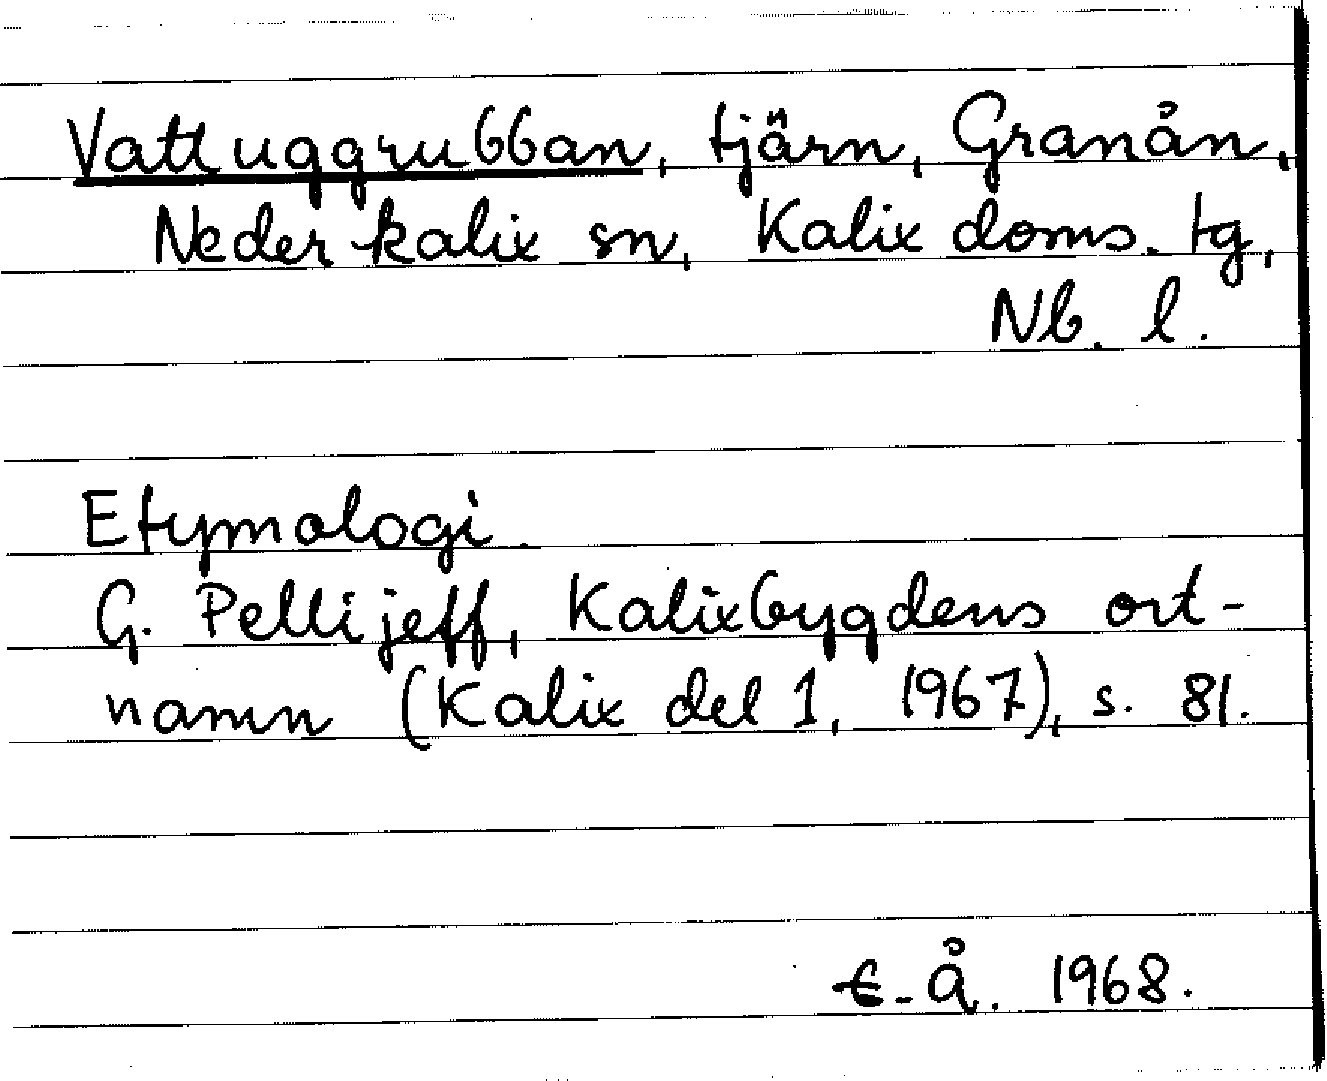 Vattuggrubban, tjärn, Granån,
Nederkalix sn, Kalix doms. tg,
Nb. l.
Etymologi.
G. Pellijeff, Kalixbygdens ort-
namn (Kalix del 1, 1967), s. 81.
E-Å. 1968.